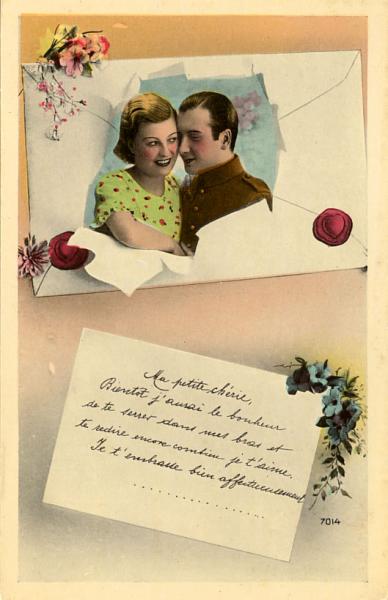 Ma petite chérie,
Bientôt j'aurai le bonheur
de te serrer dans mes bras et
te redire encore combien je t'aime.
Je t'embrasse bien affectueusement
..................
7014